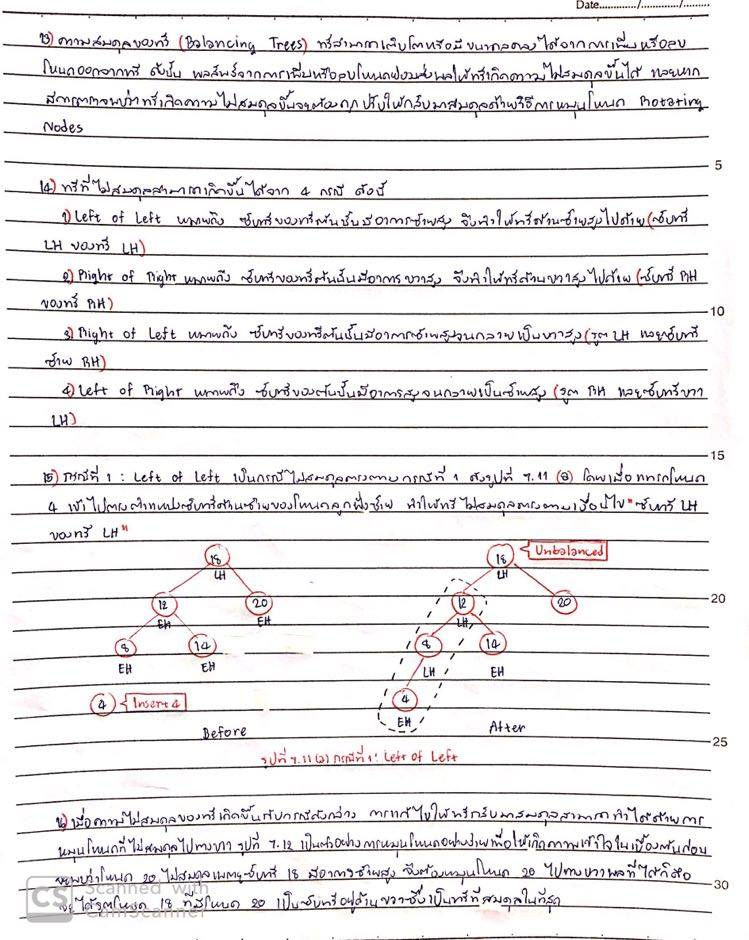 Date............/............/.........
13) ความสมดุลของทรี (Balancing Trees) ทรีสามารถเติบโตหรือมีขนาดลดลงได้จากการเพิ่มหรือลบ
โหนดออกจากทรี ดังนั้น ผลลัพธ์จากการเพิ่มหรือลบโหนดย่อมส่งผลให้ทรีเกิดความไม่สมดุลขึ้นได้ และหาก
มีการตรวจพบว่าทรีเกิดความไม่สมดุลขึ้นจะต้องถูกปรับให้กลับมาสมดุลด้วยวิธีการหมุนโหนด Rotating
Nodes
5
14) ทรีที่ไม่สมดุลสามารถเกิดขึ้นได้จาก 4 กรณี ดังนี้
1) Left of Left หมายถึง ซับทรีของทรีต้นนั้นมีอาการซ้ายสูง จึงทำให้ทรีด้านซ้ายสูงไปด้วย (ซับทรี
LH ของทรี LH)
2) Right of Right หมายถึง ซับทรีของทรีต้นนั้นมีอาการขวาสูง จึงทำให้ทรีด้านขวาสูงไปด้วย (ซับทรี RH
ของทรี RH)
10
3) Right of Left หมายถึง ซับทรีของทรีต้นนั้นมีอาการซ้ายสูงจนกลายเป็นขวาสูง (รูต LH และซับทรี
ซ้าย RH)
4) Left of Right หมายถึง ซับทรีของต้นนั้นมีอาการสูงจนกลายเป็นซ้ายสูง (รูต RH และซับทรีขวา
LH)
15
15) กรณีที่ 1 : Left of Left เป็นกรณีไม่สมดุลตรงตามกรณีที่ 1 ดังรูปที่ 7.11 (a) โดยเมื่อแทรกโหนด
4 เข้าไปตรงตำแหน่งซับทรีด้านซ้ายของโหนดลูกฝั่งซ้าย ทำให้ทรีไม่สมดุลตรงตามเงื่อนไข "ซับทรี LH
ของทรี LH"
18 18 Unbalanced
LH LH
12 20 12 20
20
EH EH LH
8 14 8 14
EH EH LH EH
4 Insert 4 4
EH
Before After
25
รูปที่ 7.11 (a) กรณีที่ 1: Left of Left
16) เมื่อความไม่สมดุลของทรีเกิดขึ้นกับกรณีดังกล่าว การแก้ไขให้ทรีกลับมาสมดุลสามารถทำได้ด้วยการ
หมุนโหนดที่ไม่สมดุลไปทางขวา รูปที่ 7.12 เป็นตัวอย่างการหมุนโหนดอย่างง่ายเพื่อให้เกิดความเข้าใจในเบื้องต้นก่อน
จะพบว่าโหนด 20 ไม่สมดุลเพราะซับทรี 18 มีอาการซ้ายสูง จึงต้องหมุนโหนด 20 ไปทางขวาผลที่ได้ก็คือ
30
จะได้รูตโหนด 18 ที่มีโหนด 20 เป็นซับทรีอยู่ด้านขวาซึ่งเป็นทรีที่สมดุลในที่สุด
CS Scanned with
CamScanner